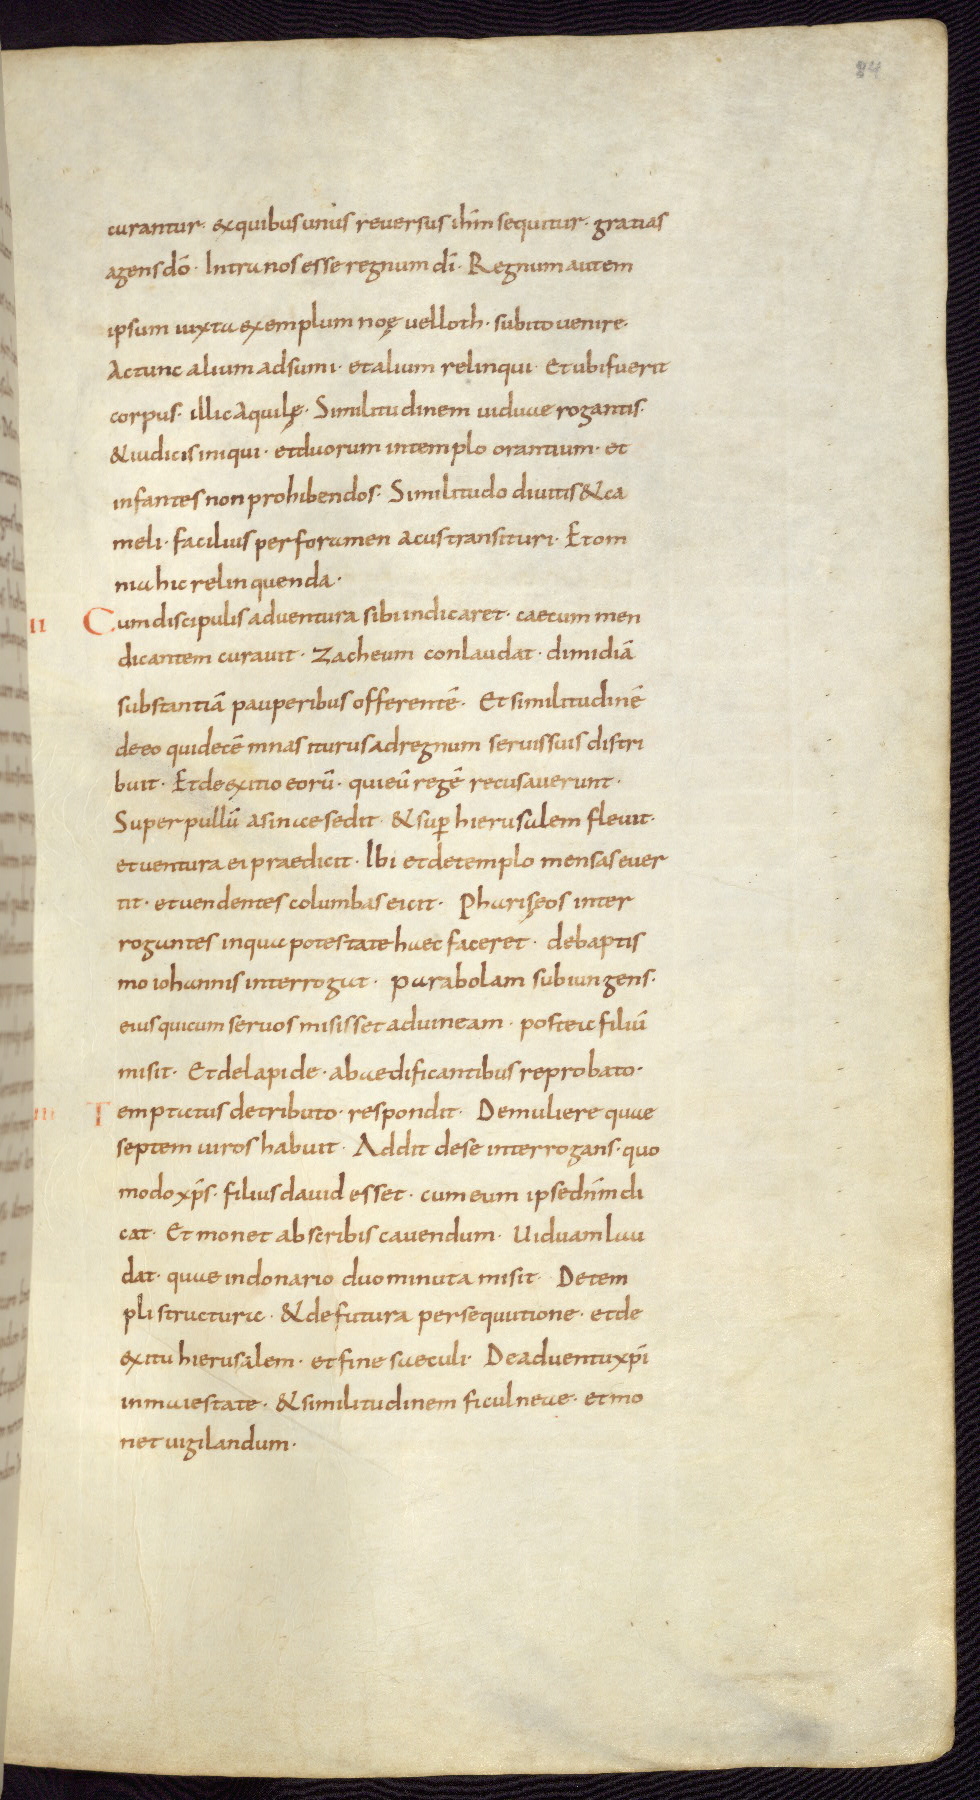 84
curantur· ex quibus unus reversus ihm̄ sequitur· gratias
agens dō· Intra nos esse regnum dī· Regnum autem
ipsum iuxta exemplum noę uel loth· subito uenire·
Ac tunc alium adsumi· et alium relinqui· Et ubi fuerit
corpus· illic aquilę· Similitudinem uiduae rogantis·
& iudicis iniqui· et duorum in templo orantium· et
infantes non prohibendos· Similitudo diuitis & ca
meli· facilius per foramen acus transituri· Et om
nia hic relinquenda·
II Cum discipulis adventura sibi indicaret· caecum men
dicantem curauit· Zacheum conlaudat· dimidiā
substantiā pauperibus offerentē· Et similitudinē
de eo qui decē mnas iturus ad regnum seruis suis distri
buit· Et de exitio eorū· qui eū regē recusaverunt·
Super pullū asinae sedit· & sup̄ hierusalem fleuit·
et uentura ei praedicit· Ibi et de templo mensas euer
tit· et uendentes columbas eicit· Phariseos inter
rogantes in qua potestate haec faceret· de baptis
mo iohannis interrogat· parabolam subiungens·
eius qui cum seruos misisset ad uineam· postea filiū
misit· Et de lapide· ab aedificantibus reprobato·
III Temptatus de tributo· respondit· De muliere quae
septem uiros habuit· Addit de se interrogans· quo
modo xp̄s· filius dauid esset· cum eum ipse dnm̄ di
cat· Et monet ab scribis cauendum· Uiduam lau
dat· quae in donario duo minuta misit· De tem
pli structura· & de futura persequutione· et de
exitu hierusalem· et fine saeculi· De adventu xp̄i
in maiestate· & similitudinem ficulneae· et mo
net uigilandum·